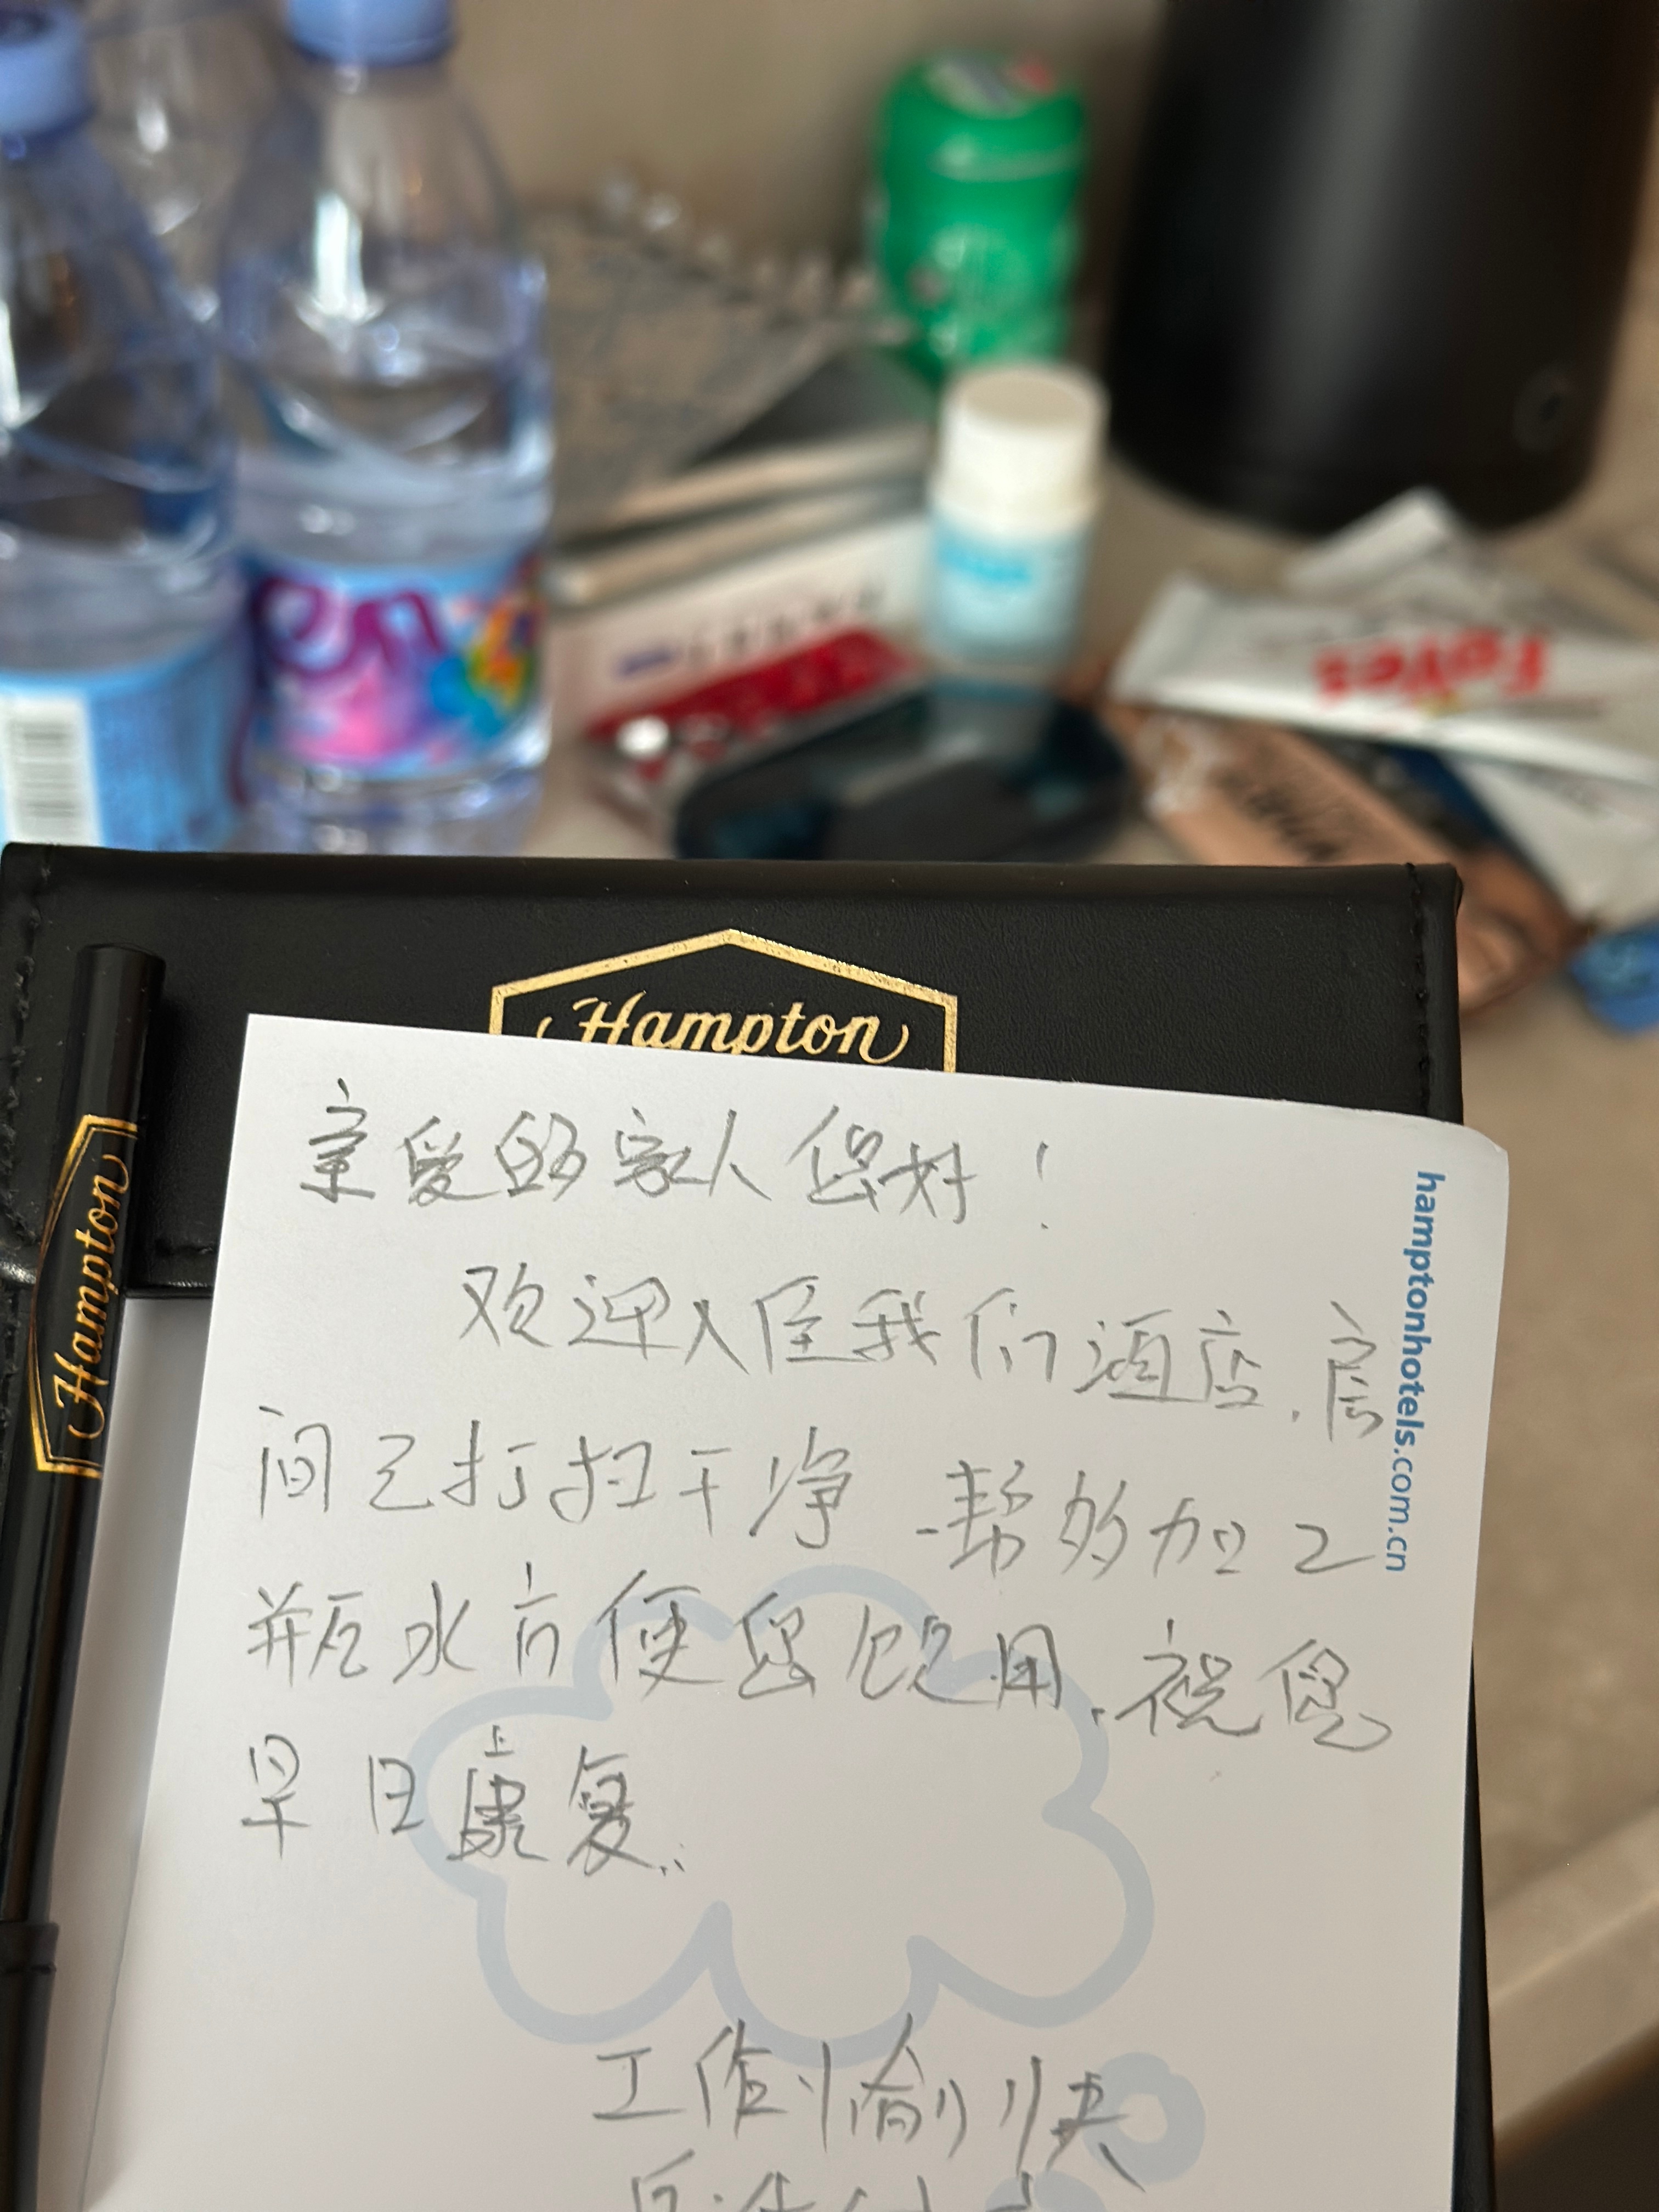 Hampton
Hampton
hamptonhotels.com.cn
亲爱的家人您好！
欢迎入住我们酒店.房
间已打扫干净.帮您加了
瓶水方便您饮用.祝您
早日康复.
工作愉快